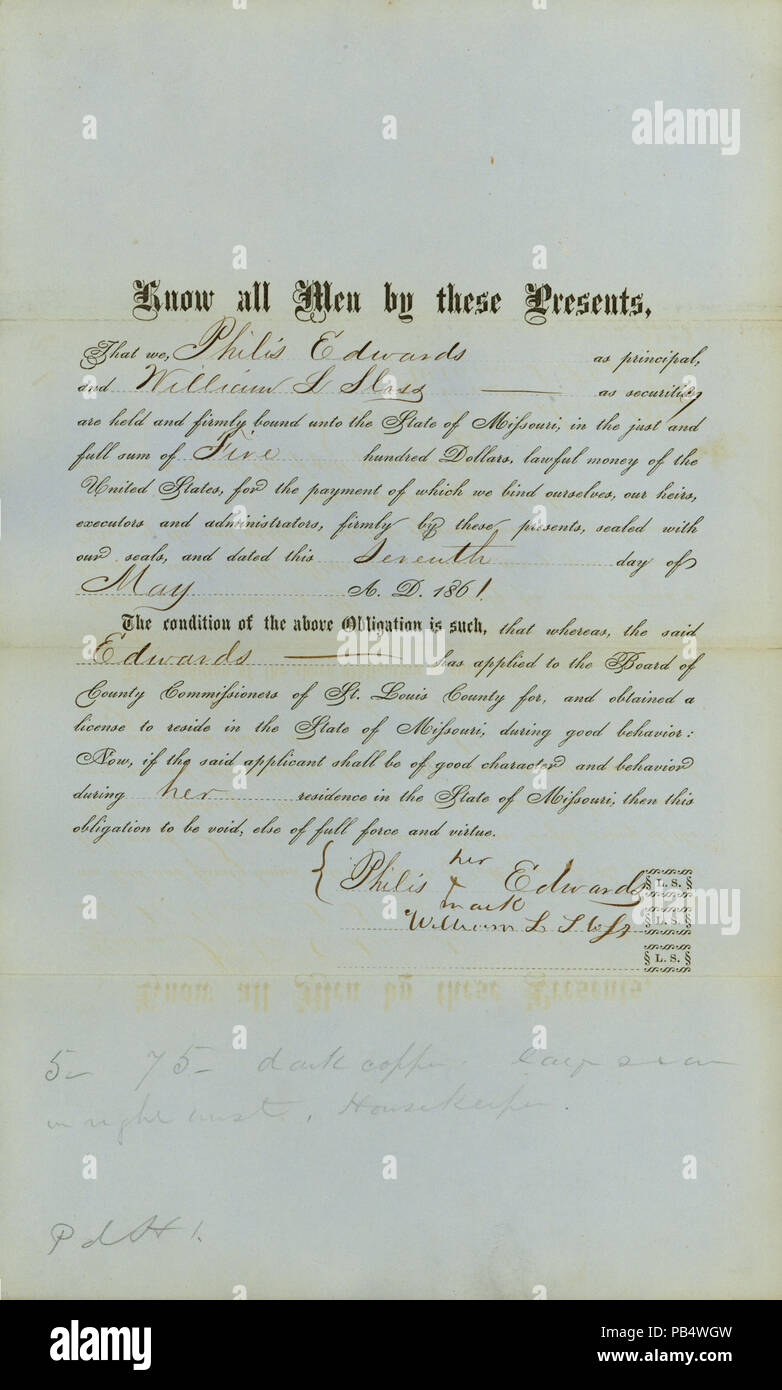 Know all Men by these Presents,
That we, Philis Edwards as principal,
and William L — as securities
are held and firmly bound unto the State of Miſsouri, in the just and
full sum of Five hundred Dollars, lawful money of the
United States, for the payment of which we bind ourselves, our heirs,
executors and administrators, firmly by these presents, sealed with
our seals, and dated this Seventh day of
May A. D. 1861.
The condition of the above Obligation is such, that whereas, the said
Edwards — has applied to the Board of
County Commiſsioners of St. Louis County for, and obtained a
license to reside in the State of Miſsouri, during good behavior:
Now, if the said applicant shall be of good character and behavior
during her residence in the State of Miſsouri, then this
obligation to be void, else of full force and virtue.
her
Philis x Edwards § L. S. §
mark
William L § L. S. §
§ L. S. §
Know all Men by these Presents,
5- 75- dark copper large scar
on right wrist. Housekeeper.
Pd 1.
alamy
a
alamy
Image ID: PB4WGW
www.alamy.com